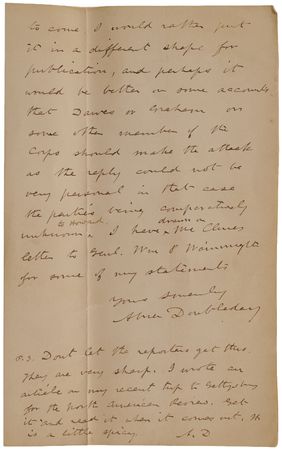 to come I would rather put
it in a different shape for
publication, and perhaps it
would be better on some accounts
that Dawes or Graham or
some other member of the
Corps should make the attack
as the reply could not be
very personal in that case
the parties being comparatively
to Howard drawn on
unknown. I have Mc Clures
letter to Genl. Wm P Wainwright
for some of my statements
Yours Sincerely
Abner Doubleday
P.S. Dont let the reporters get this.
They are very sharp. I wrote an
article on my recent trip to Gettysburg
for the North American Review. Get
it and read it when it comes out. It
is a little spicy. A. D